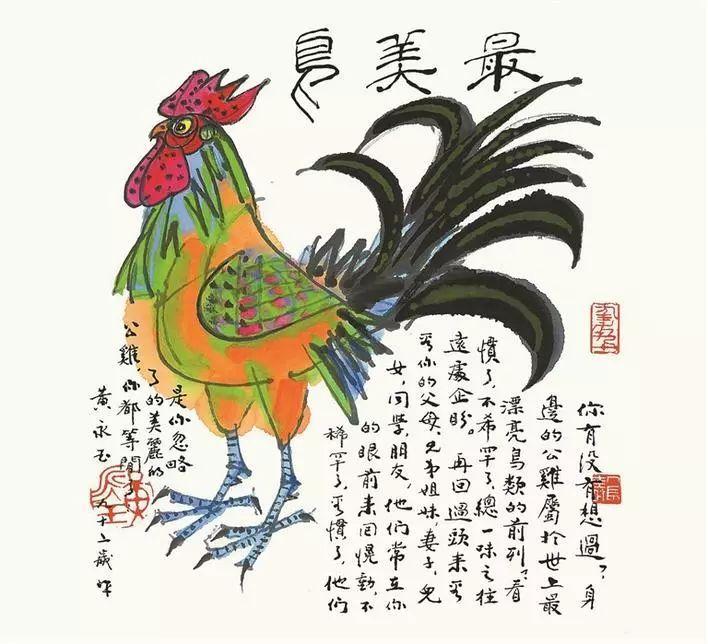 最美鳥
你有没有想過？身
邊的公雞屬於世上最
漂亮鳥類的前列？看
慣了，不希罕了，總一味之往
遠處企盼。再回過頭来看
看你的父母，兄弟姐妹，妻子，兒
女，同學，朋友，他們常在你
的眼前来回愰動，不
稀罕了，看慣了，他們
是你忽略
了的美麗的
公雞，你都等閒了
黄永玉
九十二歲作